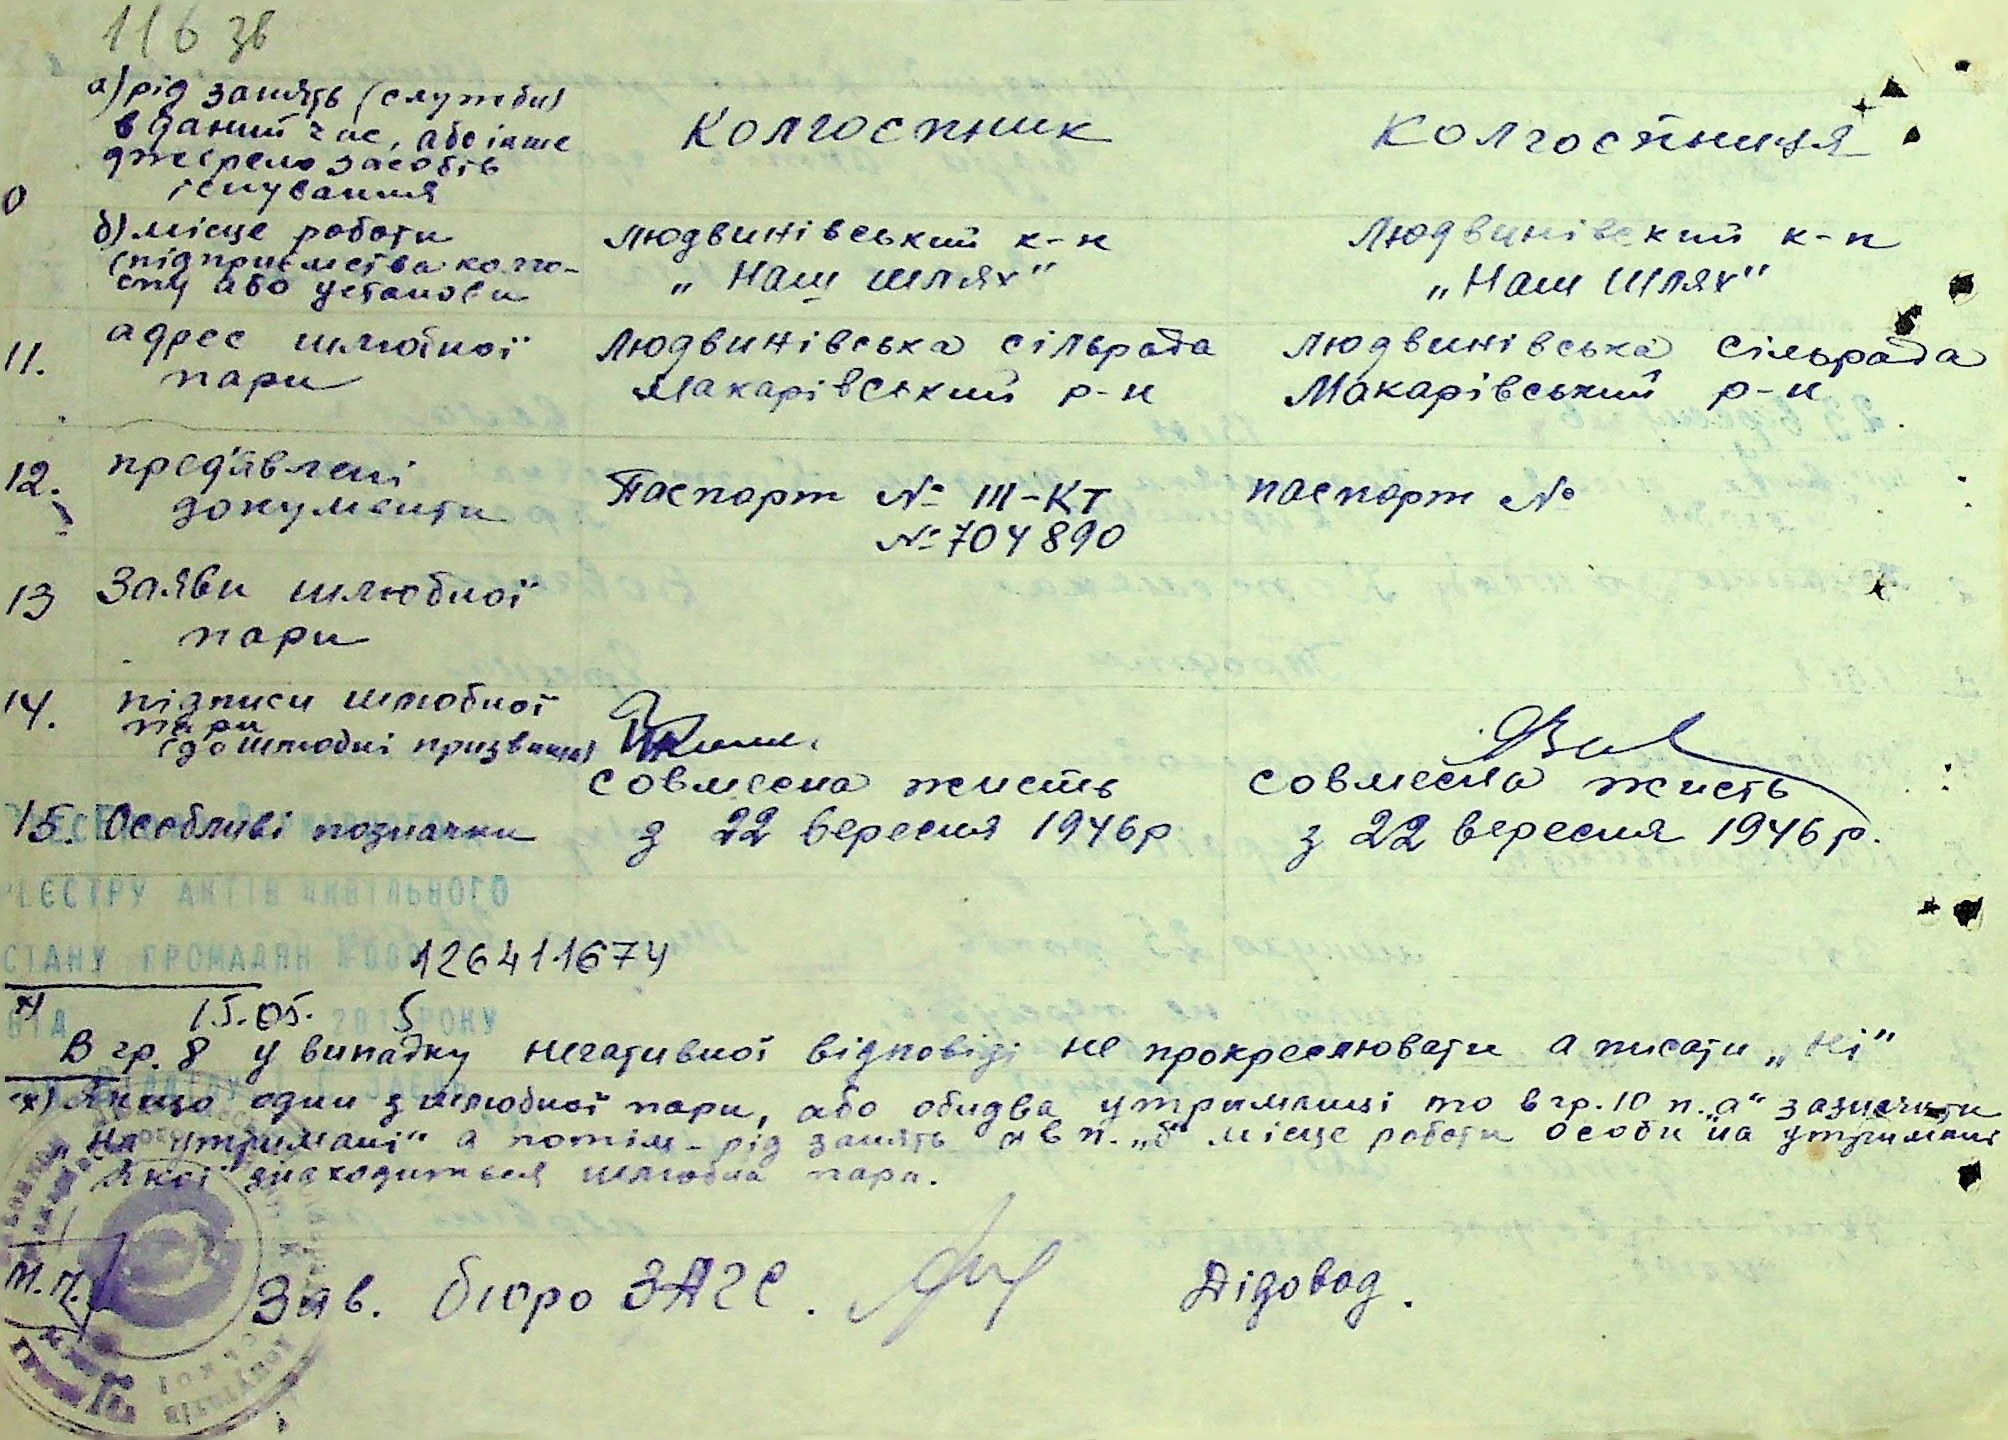 116 зв
а) рід занять (служби) в даний час, або інше джерело засобів існування
Колгоспник
Колгоспниця
0
б) місце роботи (підприємства колго-спу або установи
Людвинівський к-п
„Наш шлях"
Людвинівский к-п
„Наш шлях"
11. адрес шлюбної пари
Людвинівська сільрада
Макарівський р-н
Людвинівська сільрада
Макарівський р-н
12. пред'явлені документи
Паспорт № III-КТ
№ 704890
паспорт №
13 Заяви шлюбної пари
14. підписи шлюбної пари (дошлюбні призвища)
15. Особливі позначки
совмесна жисть
з 22 вересня 1946 р
совмесна жисть
з 22 вересня 1946 р.
РЕЄСТРУ АКТІВ ЦИВІЛЬНОГО
СТАНУ ГРОМАДЯН
126411674
х) 15.05. 5
ВІД 201 РОКУ
В гр. 8 у випадку негативної відповіді не прокреслювати а писати „ні"
хх) Якщо один з шлюбної пари, або обидва утриманці то в гр. 10 п. „а" зазначити
„на утримані" а потім - рід занять и в п. „б" місце роботи особи на утримані
якої знаходиться шлюбна пара.
М.П.
Зав. бюро ЗАГС.
Дідовод.